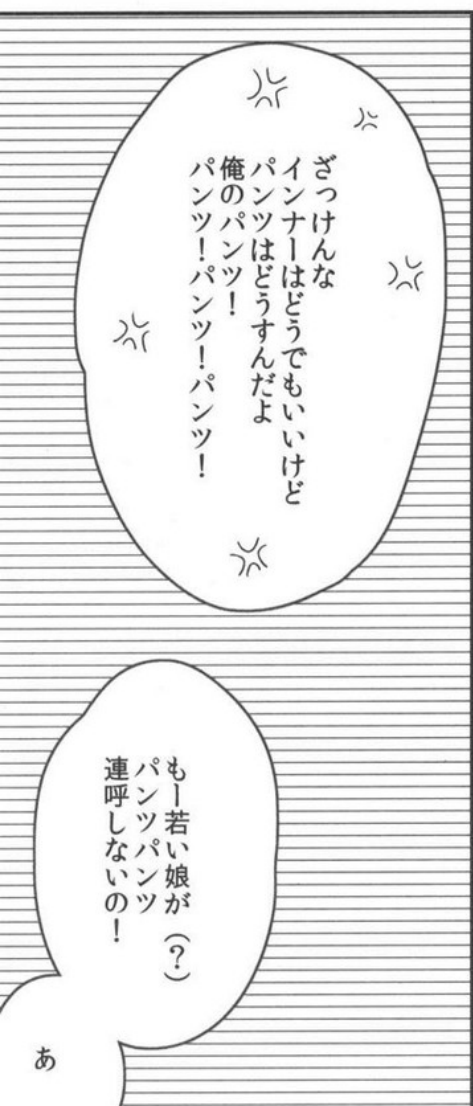 ざっけんな
インナーはどうでもいいけど
パンツはどうすんだよ
俺のパンツ!
パンツ!パンツ!パンツ!
もー若い娘が(?)
パンツパンツ
連呼しないの!
あ